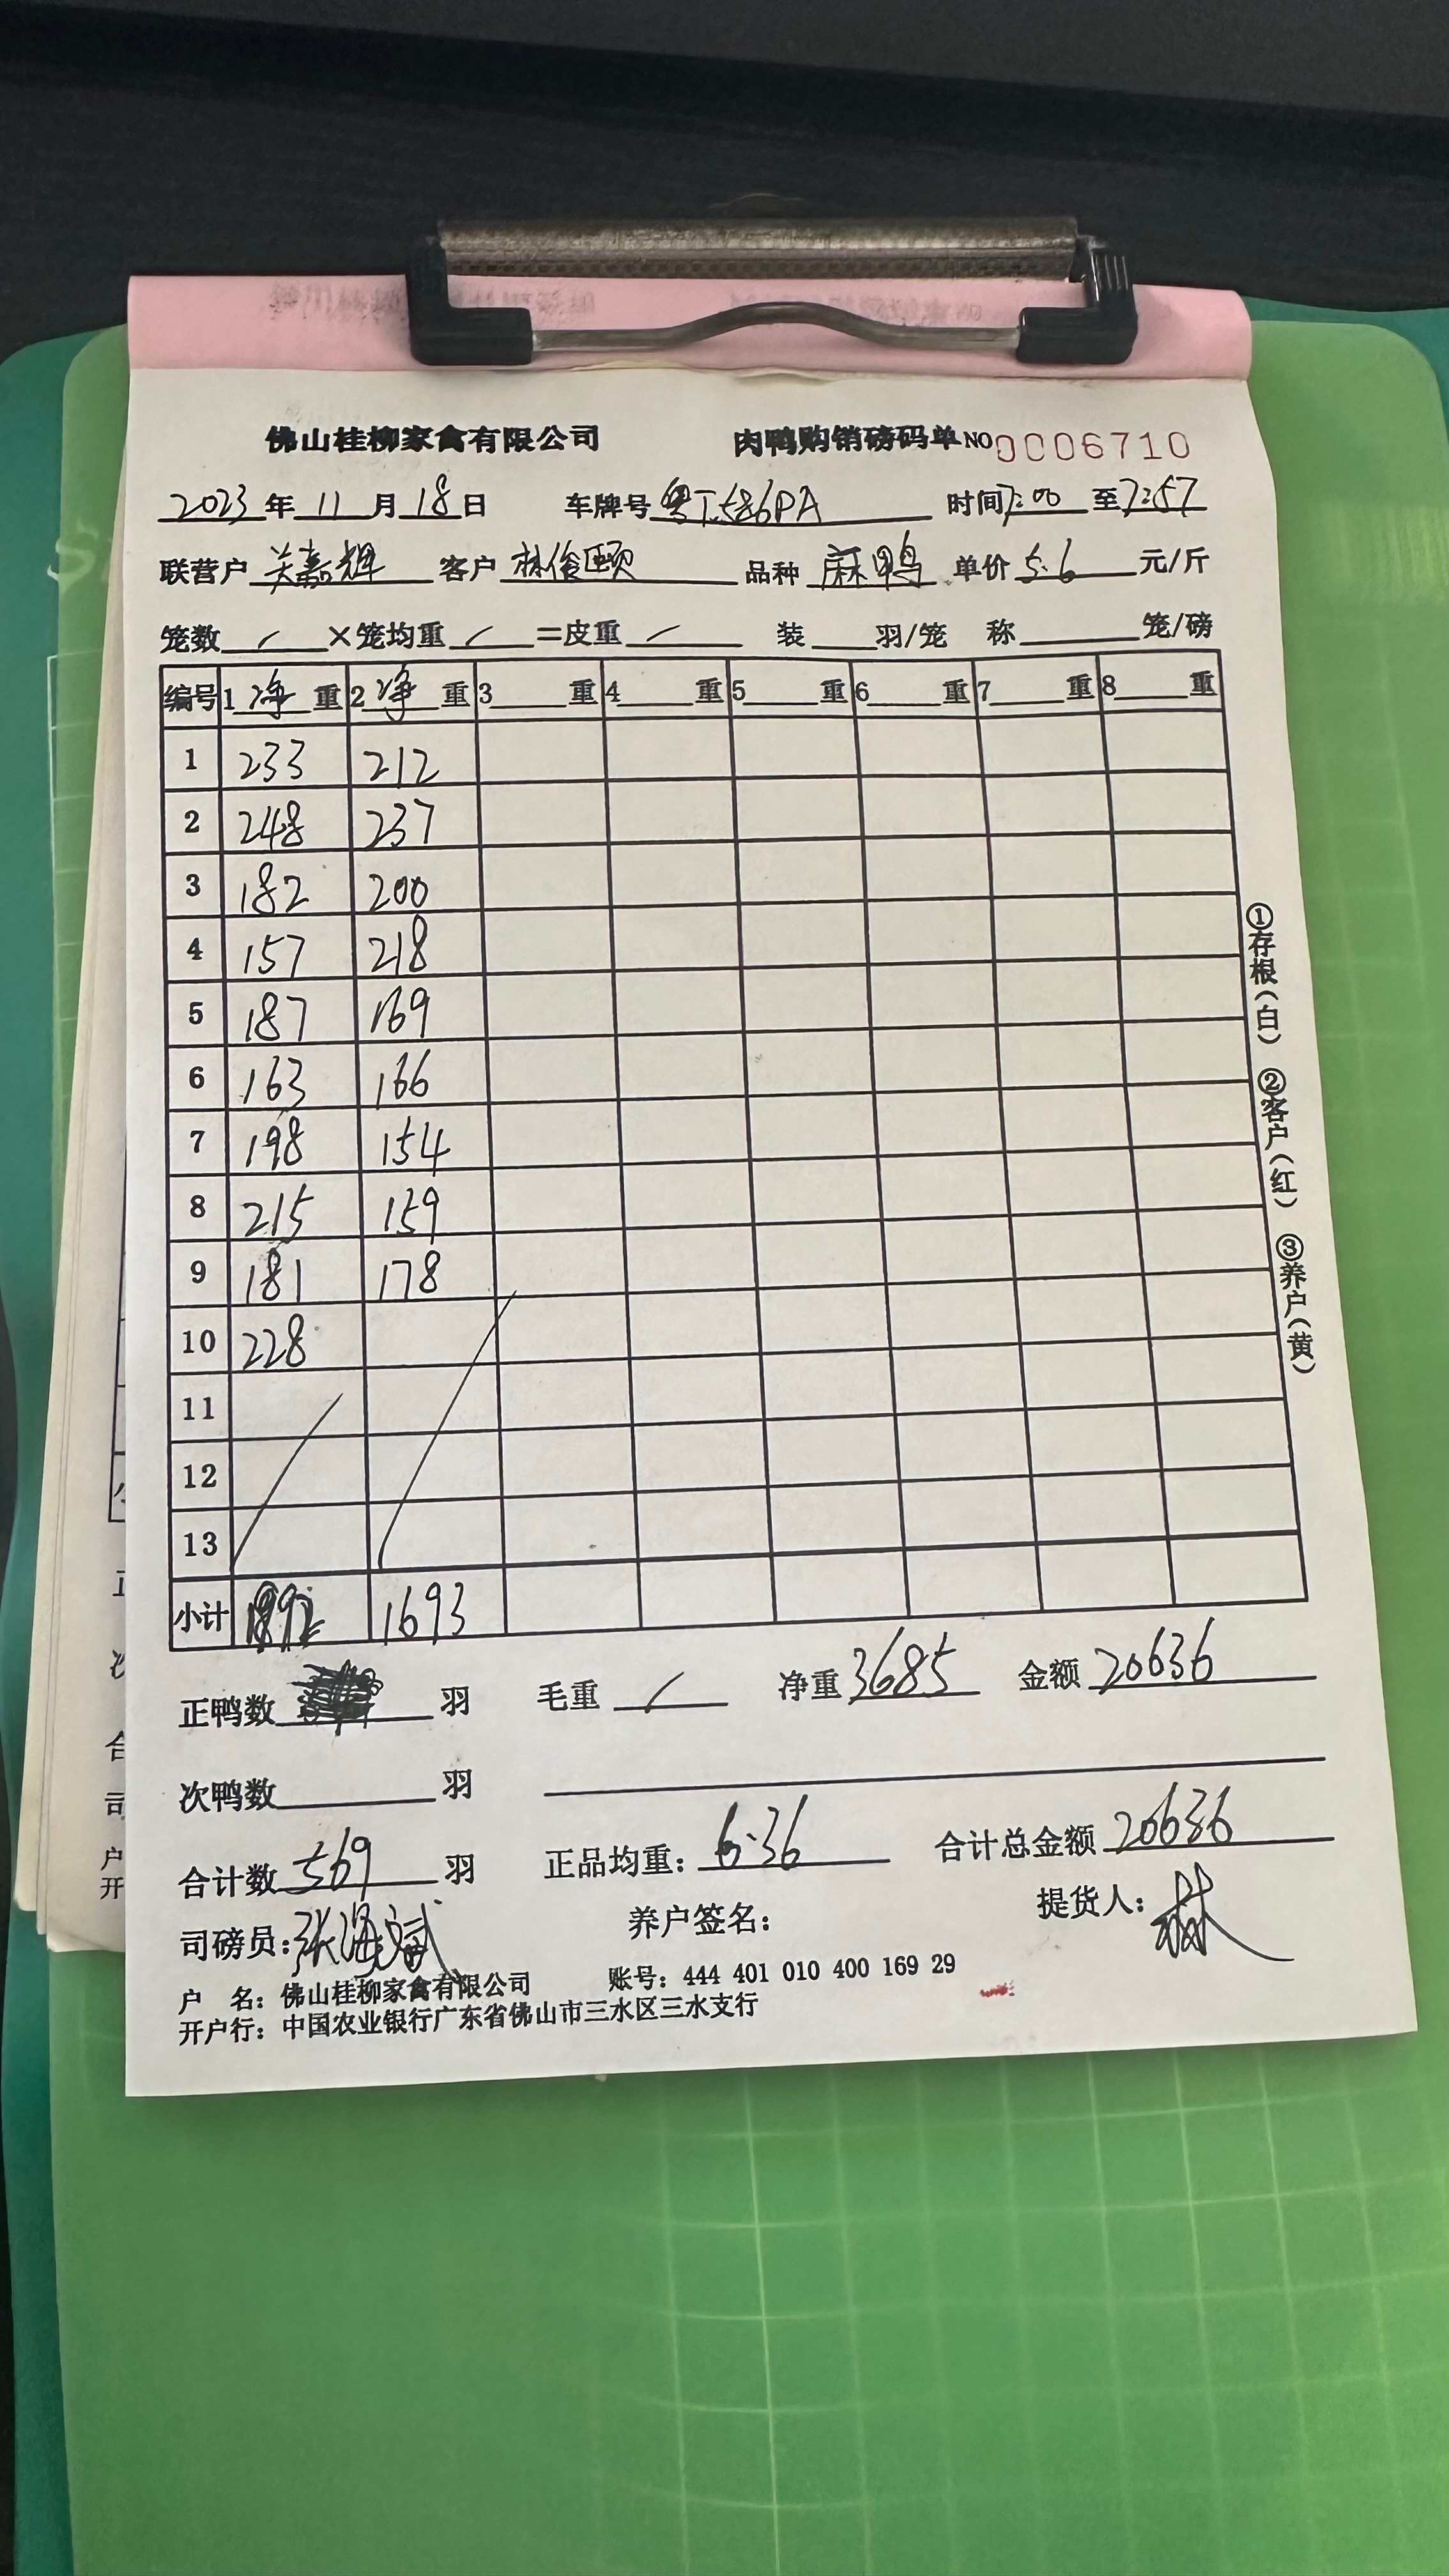 佛山桂柳家禽有限公司 肉鸭购销磅码单 NO 0006710
2023年 11月 18日 车牌号 粤T586PA 时间 7:00 至 7:57
联营户 关嘉辉 客户 林俊颐 品种 麻鸭 单价 5.6 元/斤
笼数 / ×笼均重 / =皮重 / 装 羽/笼 称 笼/磅
编号 1 净 重 2 净 重 3 重 4 重 5 重 6 重 7 重 8 重
1 233 212
2 248 237
3 182 200
4 157 218
5 187 169
6 163 166
7 198 154
8 215 159
9 181 178
10 228
11
12
13
小计 1992 1693
正鸭数 羽 毛重 / 净重 3685 金额 20636
次鸭数 羽
合计数 569 羽 正品均重: 6.36 合计总金额 20636
司磅员: 张海斌 养户签名: 提货人: 林
户 名: 佛山桂柳家禽有限公司 账号: 444 401 010 400 169 29
开户行: 中国农业银行广东省佛山市三水区三水支行
①存根(白) ②客户(红) ③养户(黄)